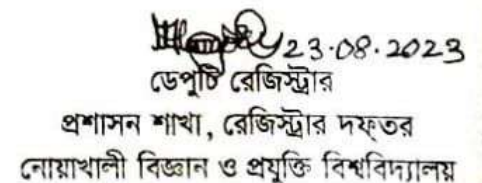 23.08.2023
ডেপুটি রেজিস্ট্রার
প্রশাসন শাখা, রেজিস্ট্রার দফ্তর
নোয়াখালী বিজ্ঞান ও প্রযুক্তি বিশ্ববিদ্যালয়